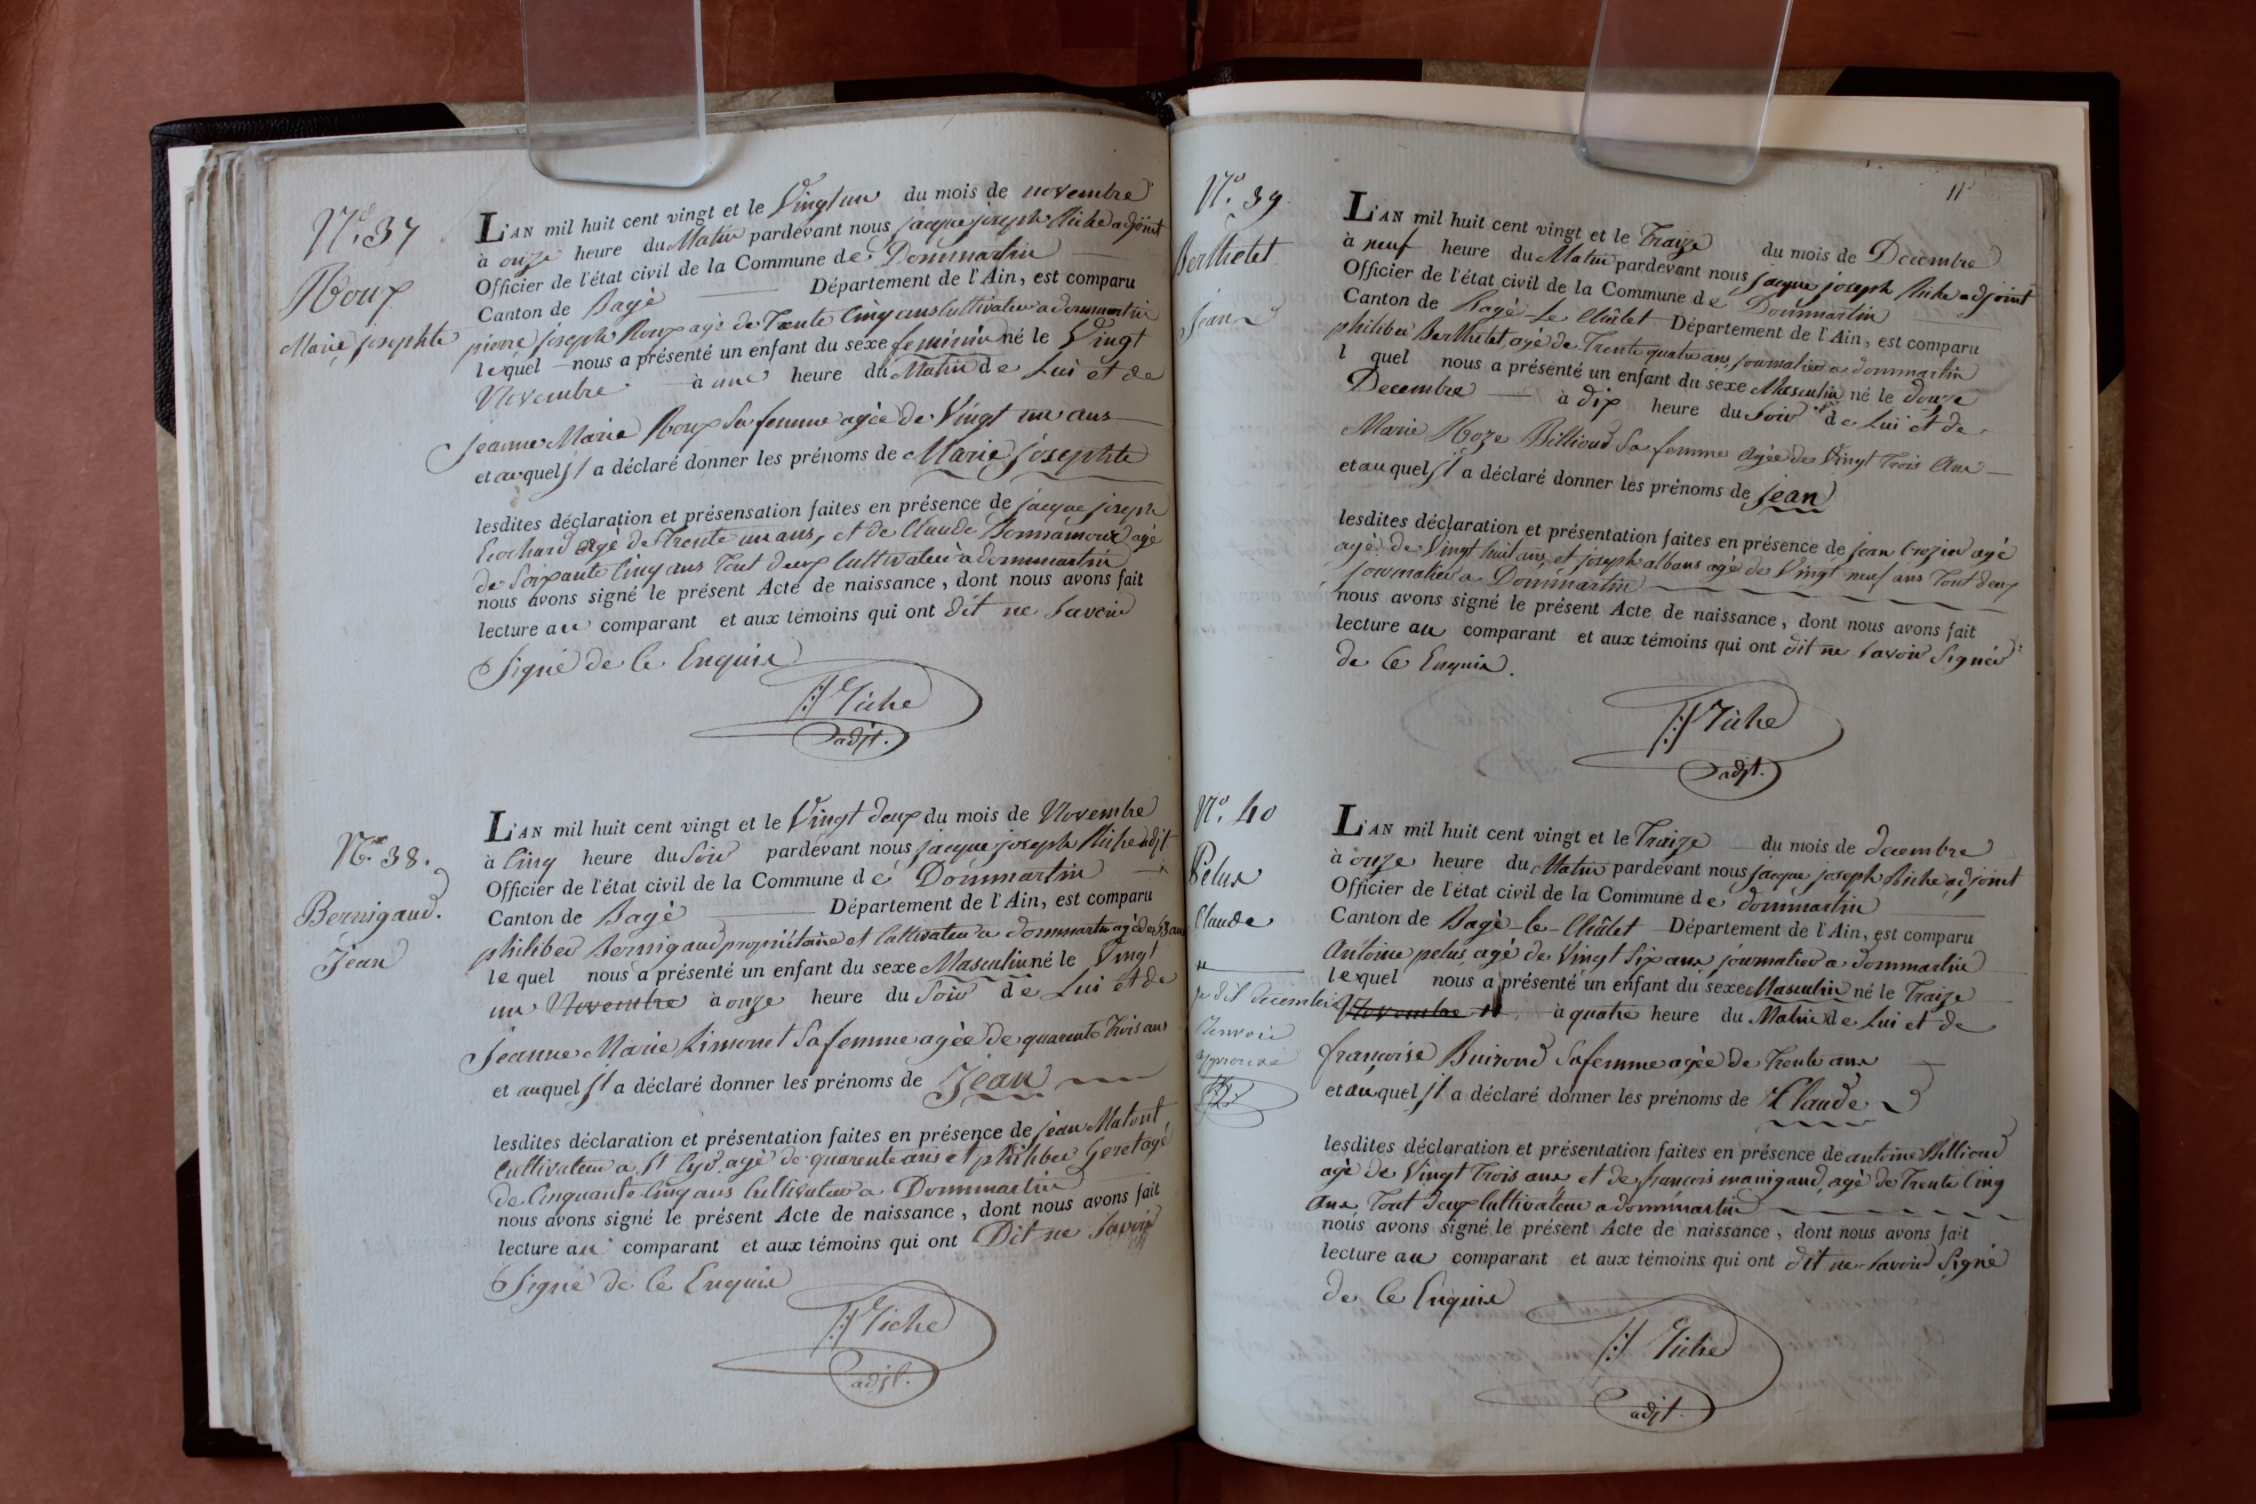 N.o 37
Roux
Marie josephte
L'AN mil huit cent vingt et le Vingt un du mois de novembre
à onze heure du Matin pardevant nous jacque joseph Riche adjoint
Officier de l'état civil de la Commune de Dommartin
Canton de Bagé Département de l'Ain, est comparu
pierre joseph Roux agé de Trente Cinq ans Cultivateur a dommartin
lequel nous a présenté un enfant du sexe feminin né le Vingt
Novembre à une heure du Matin de Lui et de
Jeanne Marie Roux Sa femme agée de Vingt un ans
et auquel Il a déclaré donner les prénoms de Marie josephte
lesdites déclaration et présensation faites en présence de jacque joseph
Brochard agé de Trente un ans, et de Claude Bonnamour agé
de Soixante Cinq ans Tout deux Cultivateur à dommartin
nous avons signé le présent Acte de naissance, dont nous avons fait
lecture au comparant et aux témoins qui ont dit ne Savoir
Signé de Ce Enquis
Riche
adjt.
N.o 38.
Bernigaud.
Jean
L'AN mil huit cent vingt et le Vingt deux du mois de Novembre
à Cinq heure du Soir pardevant nous jacque joseph Riche adjt
Officier de l'état civil de la Commune de Dommartin
Canton de Bagé Département de l'Ain, est comparu
philiber Bernigaud propriétaire et Cultivateur a dommartin agé de 53 ans
lequel nous a présenté un enfant du sexe Masculin né le Vingt
un Novembre à onze heure du Soir de Lui et de
Jeanne Marie Limonet Sa femme agée de quarente Trois ans
et auquel Il a déclaré donner les prénoms de Jean
lesdites déclaration et présentation faites en présence de jean Matout
Cultivateur a St Cyr agé de quarente ans et philiber Geret agé
de Cinquante Cinq ans Cultivateur a Dommartin
nous avons signé le présent Acte de naissance, dont nous avons fait
lecture au comparant et aux témoins qui ont Dit ne Savoir
Signé de Ce Enquis
Riche
adjt.
11
N.o 39
Berthelet
Jean
L'AN mil huit cent vingt et le Traize du mois de Decembre
à neuf heure du Matin pardevant nous jacque joseph Riche adjoint
Officier de l'état civil de la Commune de Dommartin
Canton de Bagé Le Châtet Département de l'Ain, est comparu
philiber Berthelet agé de Trente quatre ans journalier a dommartin
l quel nous a présenté un enfant du sexe Masculin né le douze
Decembre à dix heure du Soir de Lui et de
Marie Roze Billioud Sa femme agée de Vingt Trois Ans
et au quel Il a déclaré donner les prénoms de jean
lesdites déclaration et présentation faites en présence de jean Crozier agé
agé de Vingt huit ans, et joseph albans agé de Vingt neuf ans Tout deux
journalier a Dommartin
nous avons signé le présent Acte de naissance, dont nous avons fait
lecture au comparant et aux témoins qui ont dit ne Savoir Signer
de Ce Enquis.
Riche
adjt.
N.o 40
Pelus
Claude
je dit decembre
Renvoie
approuvé
L'AN mil huit cent vingt et le Traize du mois de decembre
à onze heure du Matin pardevant nous jacque joseph Riche adjoint
Officier de l'état civil de la Commune de dommartin
Canton de Bagé-le-Châtet Département de l'Ain, est comparu
Antoine pelus agé de Vingt Six ans journalier a dommartin
lequel nous a présenté un enfant du sexe Masculin né le Traize
Novembre à quatre heure du Matin de Lui et de
françoise Buiroud Sa femme agée de Trente ans
et au quel Il a déclaré donner les prénoms de Claude
lesdites déclaration et présentation faites en présence de antoine Billioud
agé de Vingt Trois ans et de françois manigaud agé de Trente Cinq
Ans Tout deux Cultivateur a dommartin
nous avons signé le présent Acte de naissance, dont nous avons fait
lecture au comparant et aux témoins qui ont dit ne Savoir Signé
de Ce Enquis
Riche
adjt.